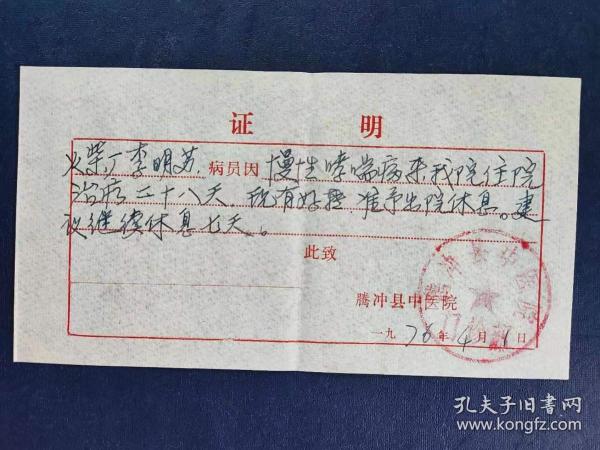 证明
火柴厂李明芳,病员因慢性哮喘病来我院住院
治疗二十八天,现有好转,准予出院休息。建
议继续休息七天。
此致
腾冲县中医院
一九76年4月 日
冲县中医院
孔夫子旧书网
www.kongfz.com